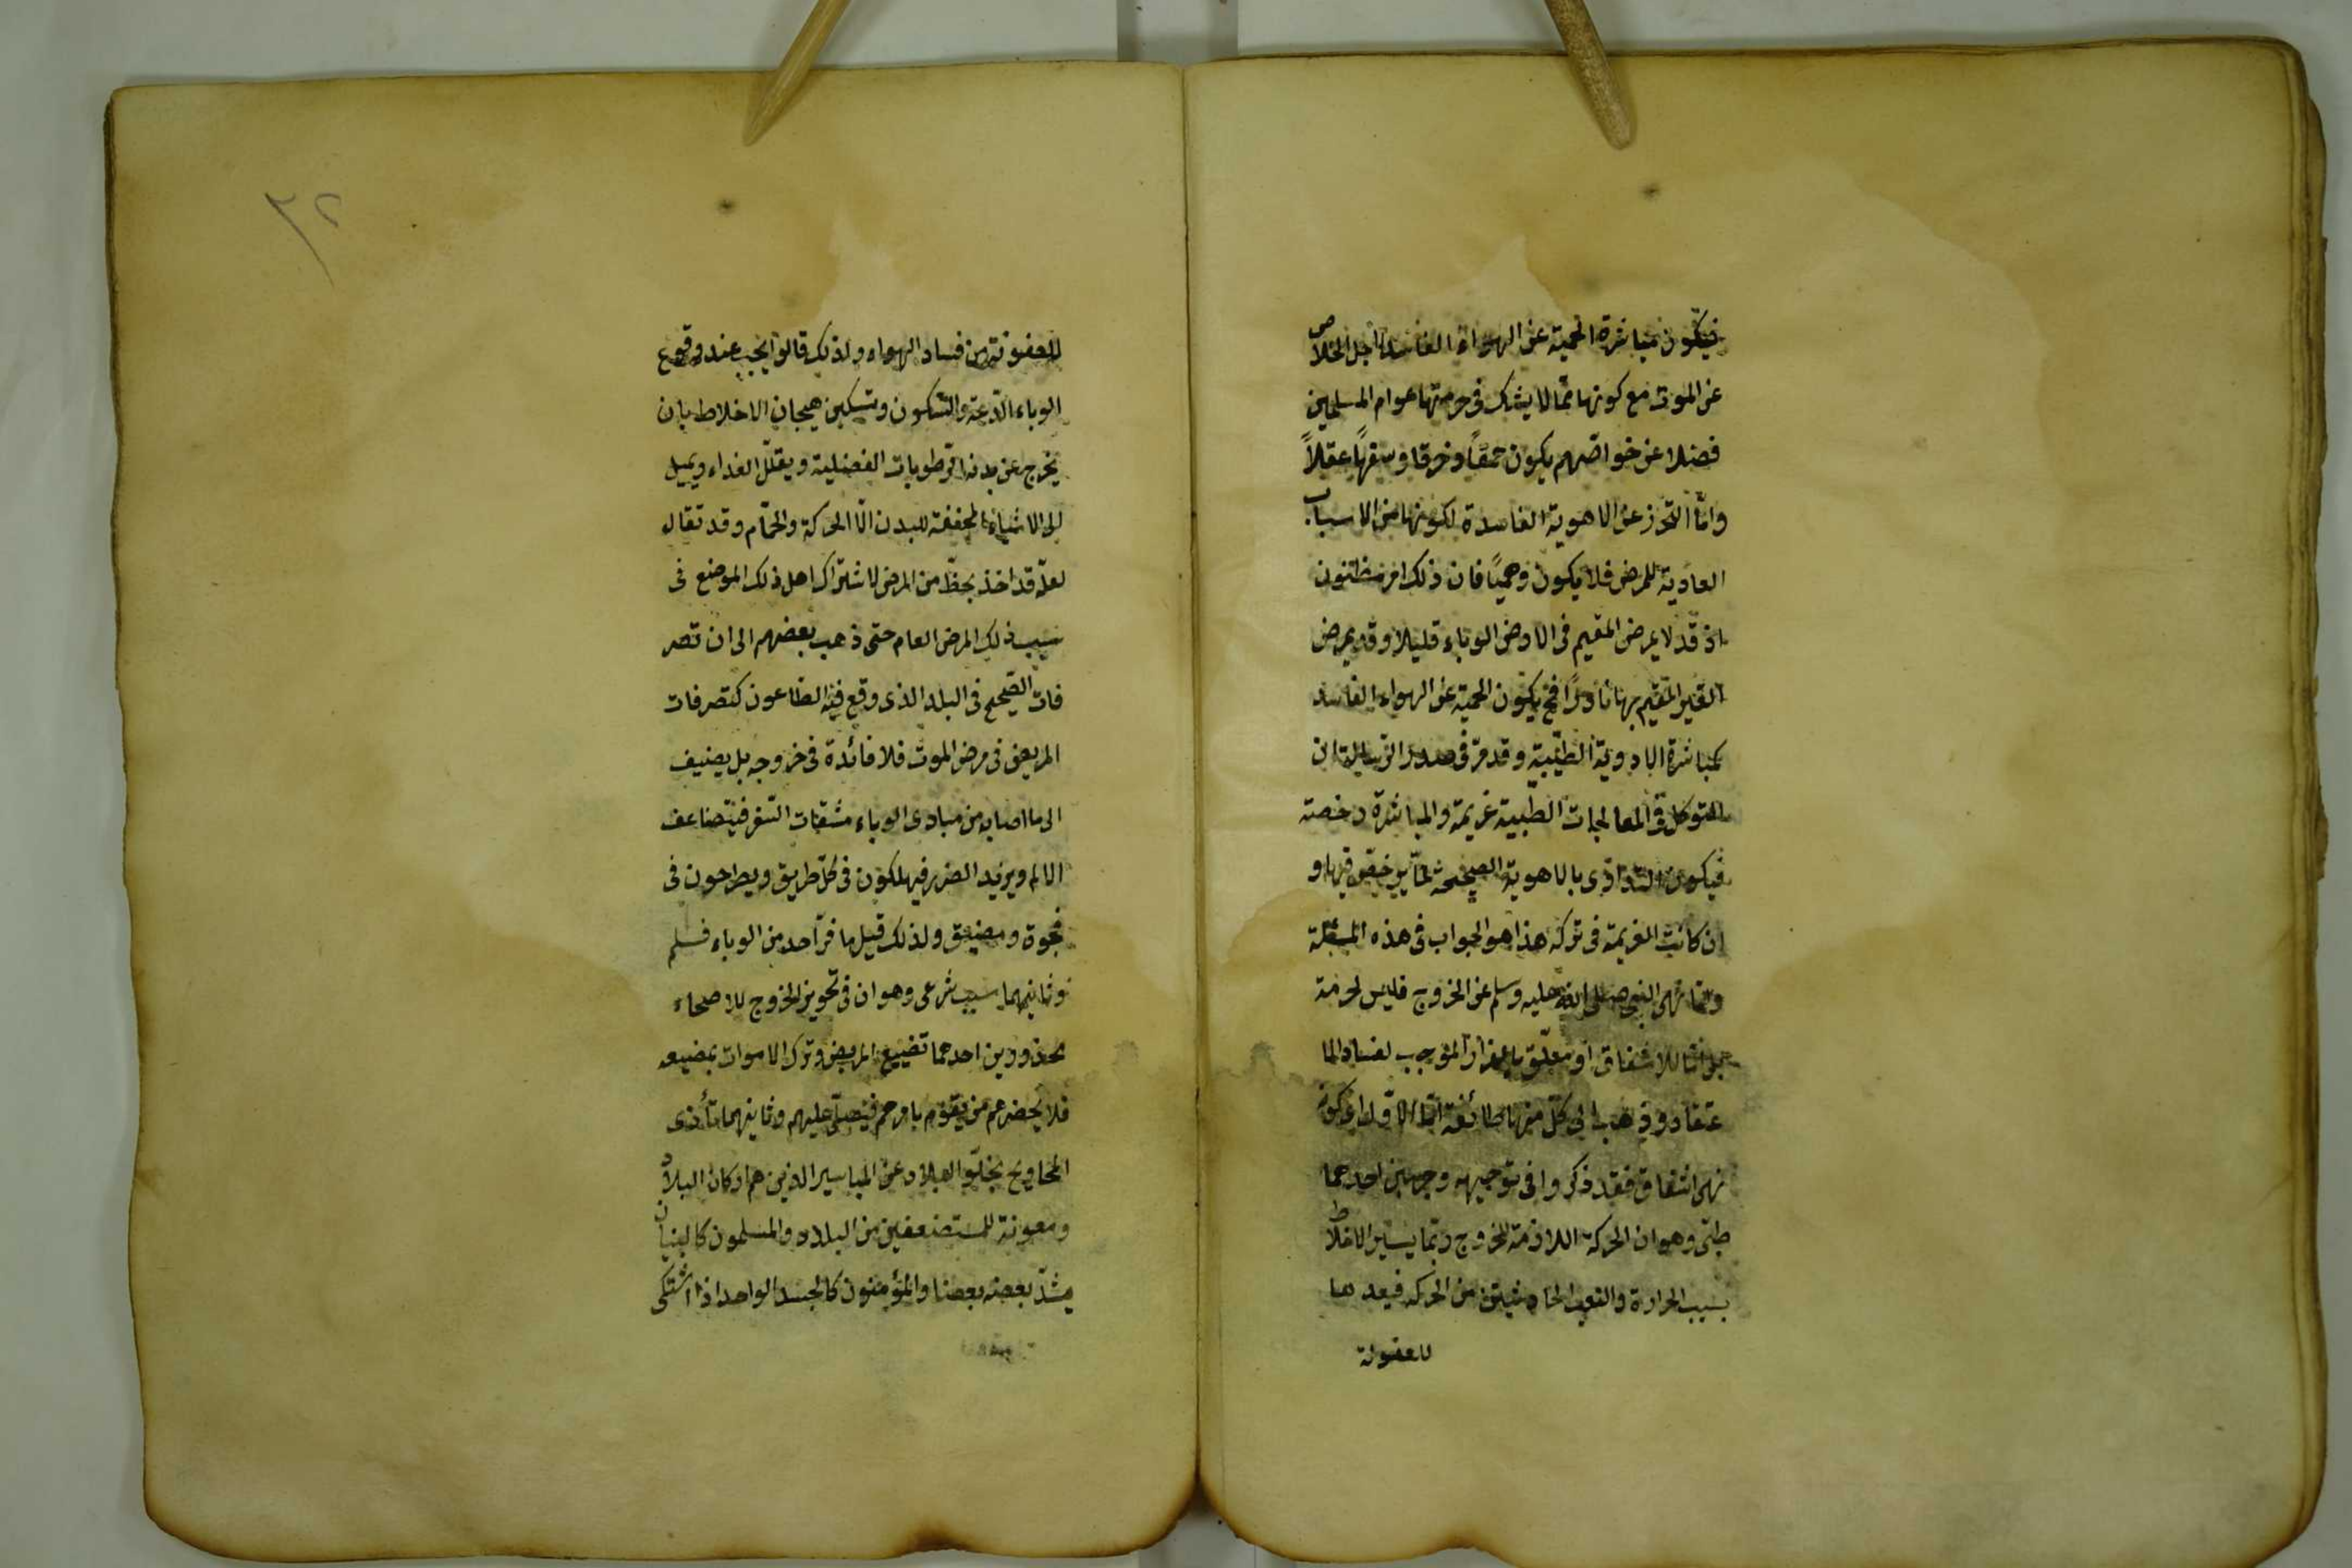 فيكون مباشرة الحمية عن الهواء الفاسد لاجل الخلاص
عن الموت مع كونها مما لا يشك فى حرمتها عوام المسلمين
فضلا عن خواصهم يكون حمقًا وخرقا وسفهًا عقلاً
وامّا التحرز عن الاهوية الفاسدة لكونها من الاسباب
العادية للمرض فلا يكون وهميًا فان ذلك امر مظنون
اذ قد لا يمرض المقيم فى الارض الوباء قليلا وقد يمرض
الغير المقيم بها نادرًا فح يكون الحمية عن الهواء الفاسد
كمباشرة الادوية الطبية وقد مر فى صدر الرسالة ان
التوكل فى المعالجات الطبية عزيمة والمباشرة رخصة
فيكون التداوى بالاهوية الصحيحة مما يرخص فيها و
ان كانت العزيمة فى تركه هذا هو الجواب فى هذه المسئلة
وانما نهى النبى صلى الله عليه وسلم عن الخروج فليس لحرمة
بل انما للاشفاق او معلق بالفرار الموجب لفساد الا
عتقاد وذهب الى كل منها طائفة اما الاول اى كونه
نهى اشفاق فقد ذكروا فى توجيهه وجهين احدهما
طبى وهو ان الحركة اللازمة للخروج ربما يسير الاخلاط
بسبب الحرارة والتعب الحادثين من الحركه فيعدها
للعفونة
٣٢
للعفونة من فساد الهواء ولذلك قالوا يجب عند وقوع
الوباء الدعة والسكون وتسكين هيجان الاخلاط بان
يخرج عن بدنه الرطوبات الفضلية ويقلل الغداء ويميل
الى الاشياء المجففة للبدن الّا الحركة والحمّام وقد تقال
لعلّه قد اخذ بحظّ من المرض لاشتراك اهل ذلك الموضع فى
سبب ذلك المرض العام حتى ذهب بعضهم الى ان تصر
فات الصحيح فى البلد الذى وقع فيه الطاعون كتصرفات
المريض فى مرض الموت فلا فائدة فى خروجه بل يضيف
الى ما اصابه من مبادى الوباء مشقات السفر فيتضاعف
الالم ويزيد الضرر فيهلكون فى كل طريق ويطرحون فى
فجوة ومضيق ولذلك قيل ما فرّ احد من الوباء فسلم
وثانيهما سبب شرعى وهو ان فى تجويز الخروج للاصحاء
محذورين احدهما تضييع المريض وترك الاموات بمضيعه
فلا يحضرهم من يقوم بامرهم فيصلّى عليهم وثانيهما تأذى
المحاويج بخلو البلاد عن المياسير الذين هم اركان البلاد
ومعونة للمستضعفين من البلاد والمسلمون كالبنيان
يشدّ بعضه بعضا والمؤمنون كالجسد الواحد اذا اشتكى